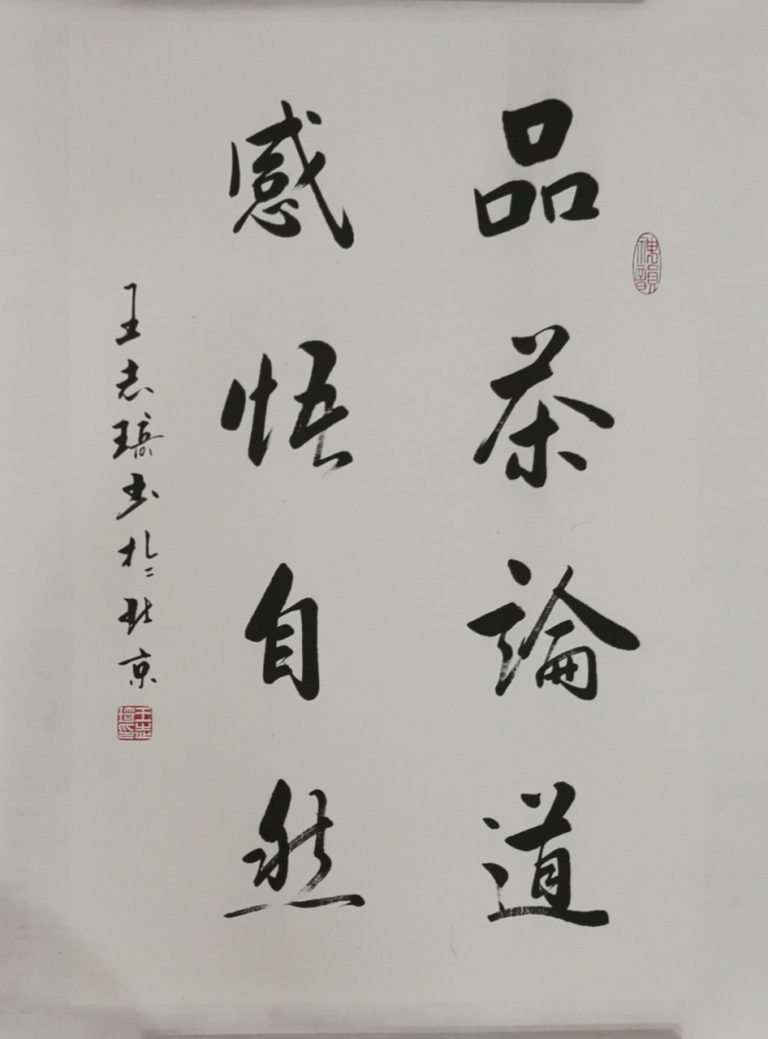 品茶論道
感悟自然
王志琦书於北京